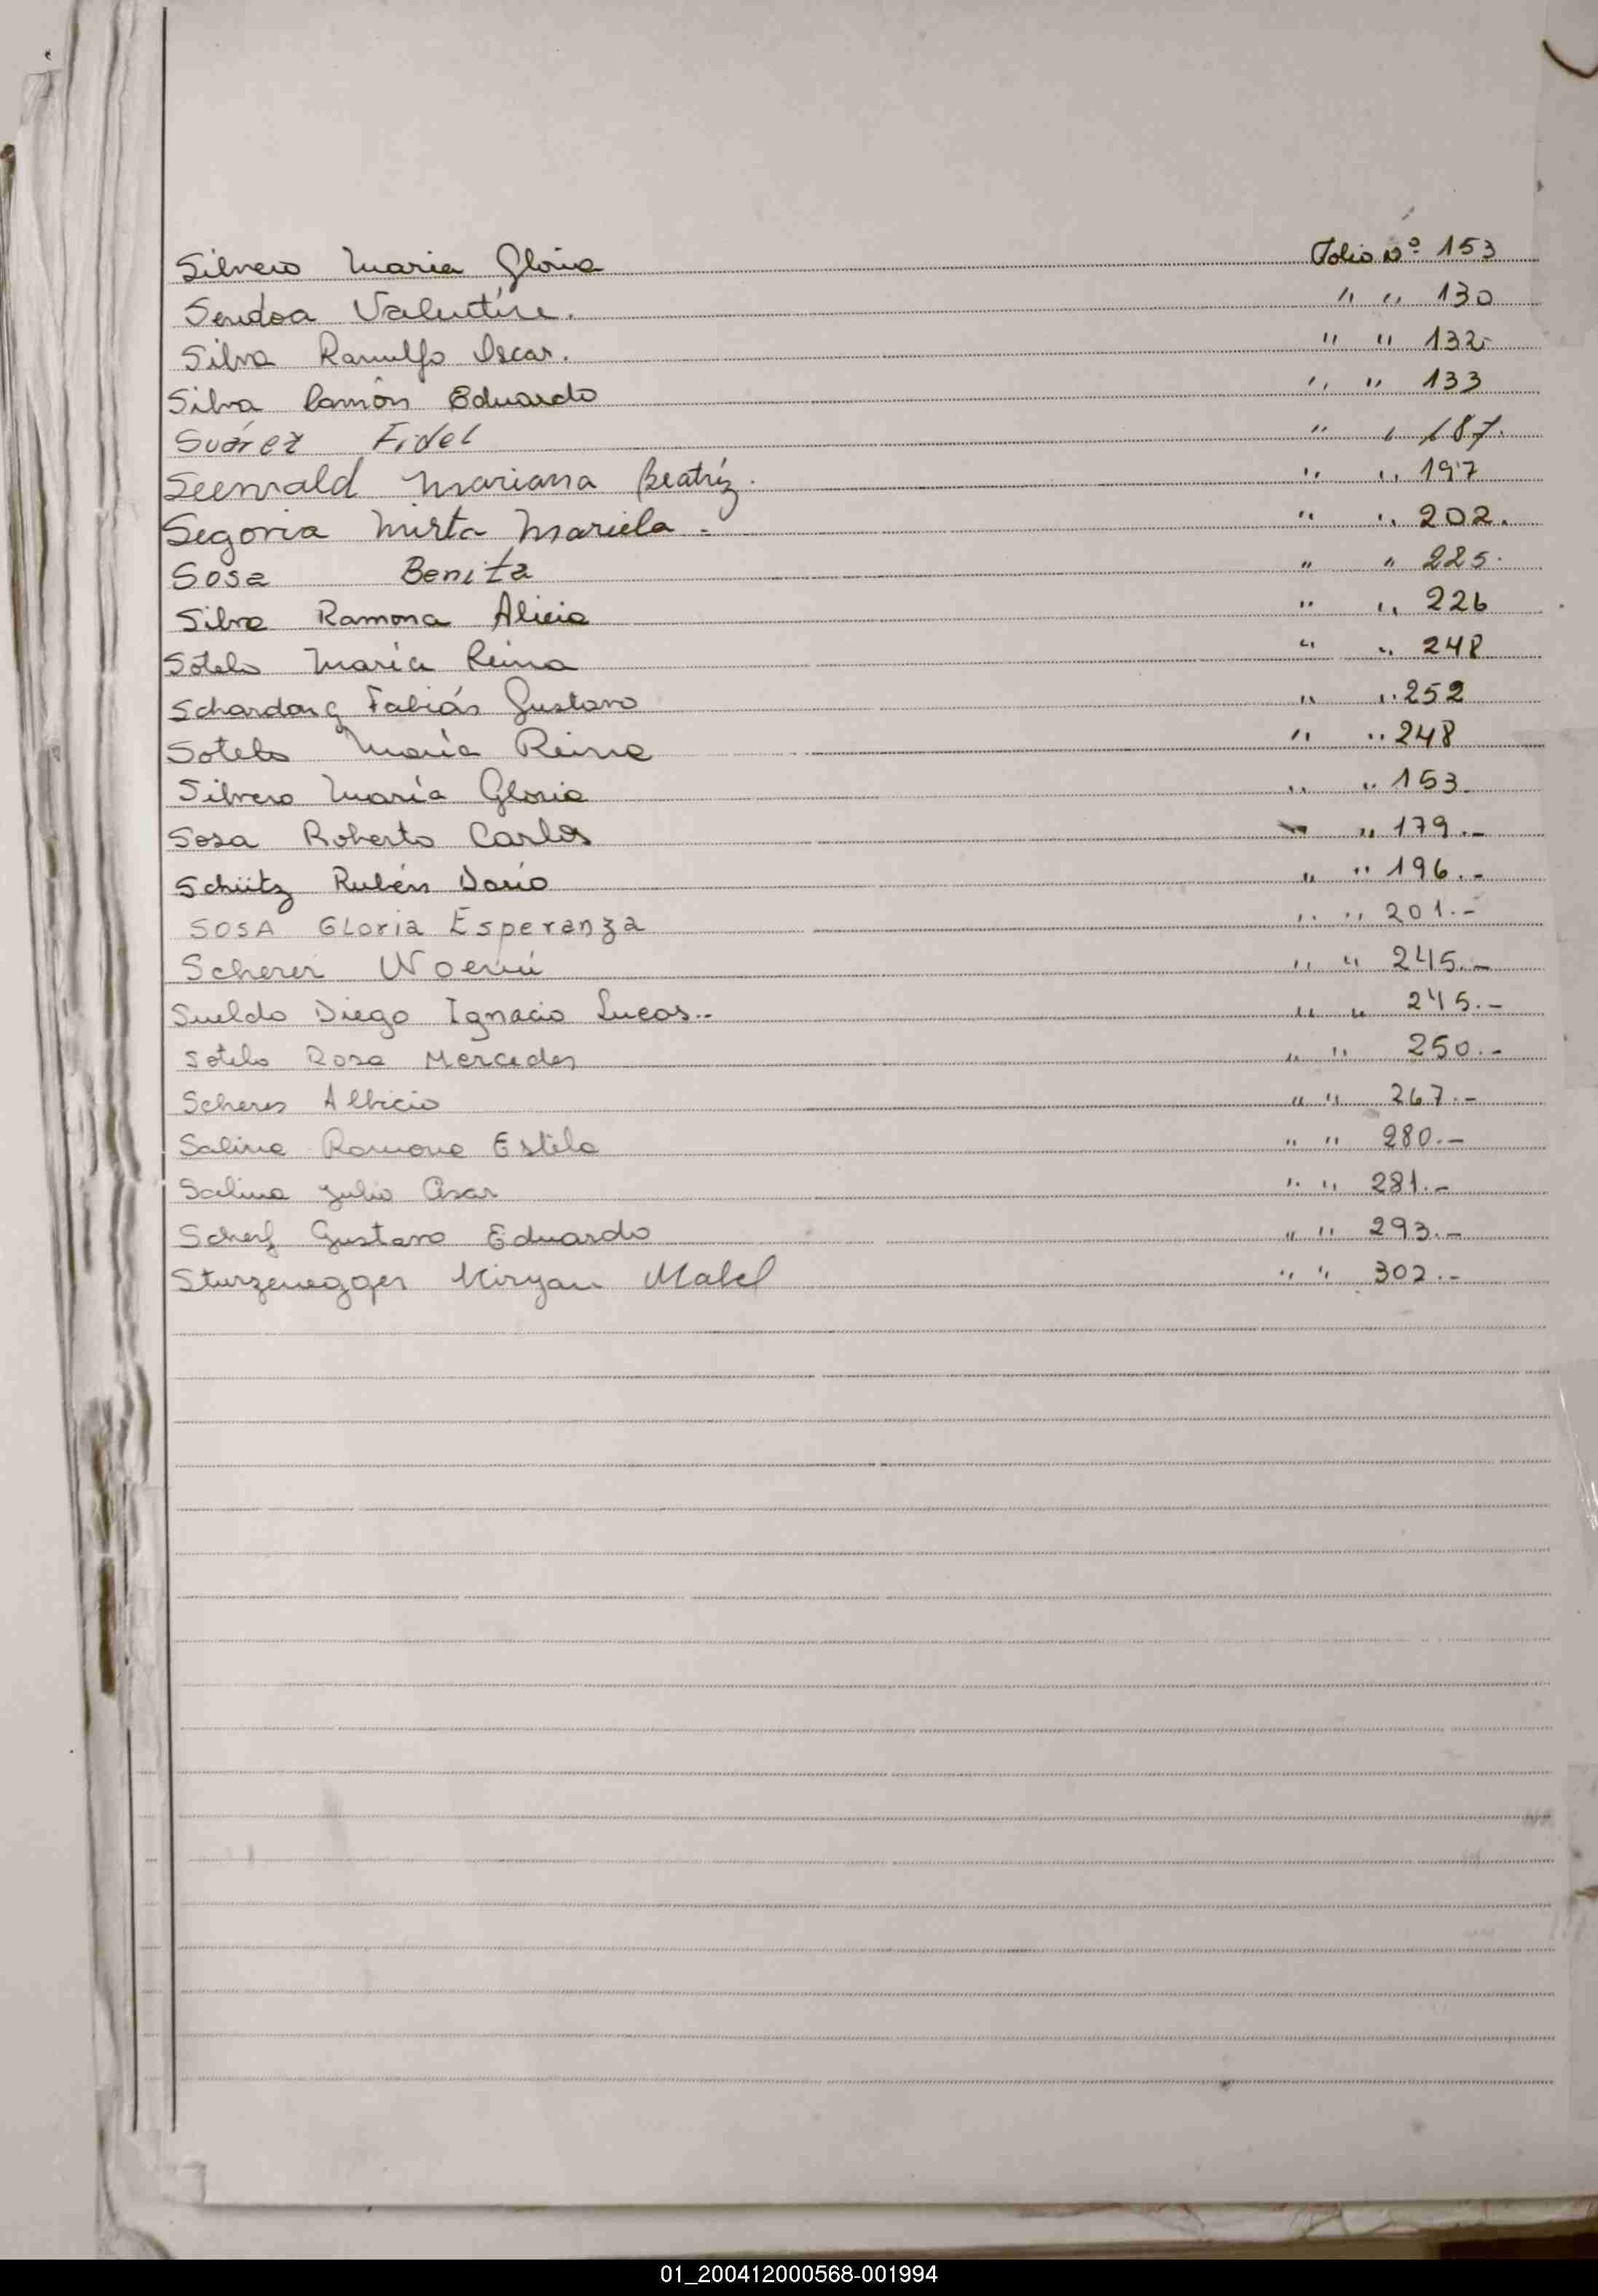 Silvero Maria Gloria Folio Nº 153
Sendoa Valentín. " " 130
Silva Ramulfo Oscar. " " 132-
Silva Ramón Eduardo " " 133
Suárez Fidel " " 187.
Seewald Mariana Beatríz. " " 197
Segovia Mirta Mariela - " " 202.
Sosa Benita " " 225.
Silva Ramona Alicia " " 226
Sotelo María Reina " " 248
Schardong Fabián Gustavo " " 252
Sotelo María Reina " " 248
Silvero María Gloria " " 153
Sosa Roberto Carlos " " 179.-
Schütz Rubén Darío " " 196.-
SOSA GLoria Esperanza " " 201.-
Scherer Noemí " " 245.-
Sueldo Diego Ignacio Lucas.- " " 245.-
Sotelo Rosa Mercedes " " 250.-
Scherer Albicio " " 267.-
Salina Ramona Estela " " 280.-
Salina Julio César " " 281.-
Scherf Gustavo Eduardo " " 293.-
Sturzenegger Miryan Mabel " " 302.-
01_200412000568-001994